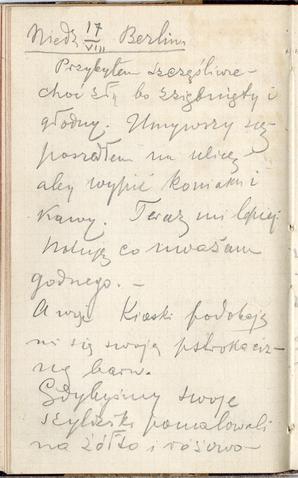 Niedz 17/VIII Berlin
Przybyłem szczęśliwie –
choć zły bo zziębnięty i
głodny. Umywszy się
poszedłem na ulicę
aby wypić koniaku i
kawy. Teraz mi lepiej
notuję co uważam
godnego. –
A więc Kioski podobają
mi się swoją pstrokaciz-
ną barw.
Gdybyśmy swoje
szyldziki pomalowali
na żółto i różowo –